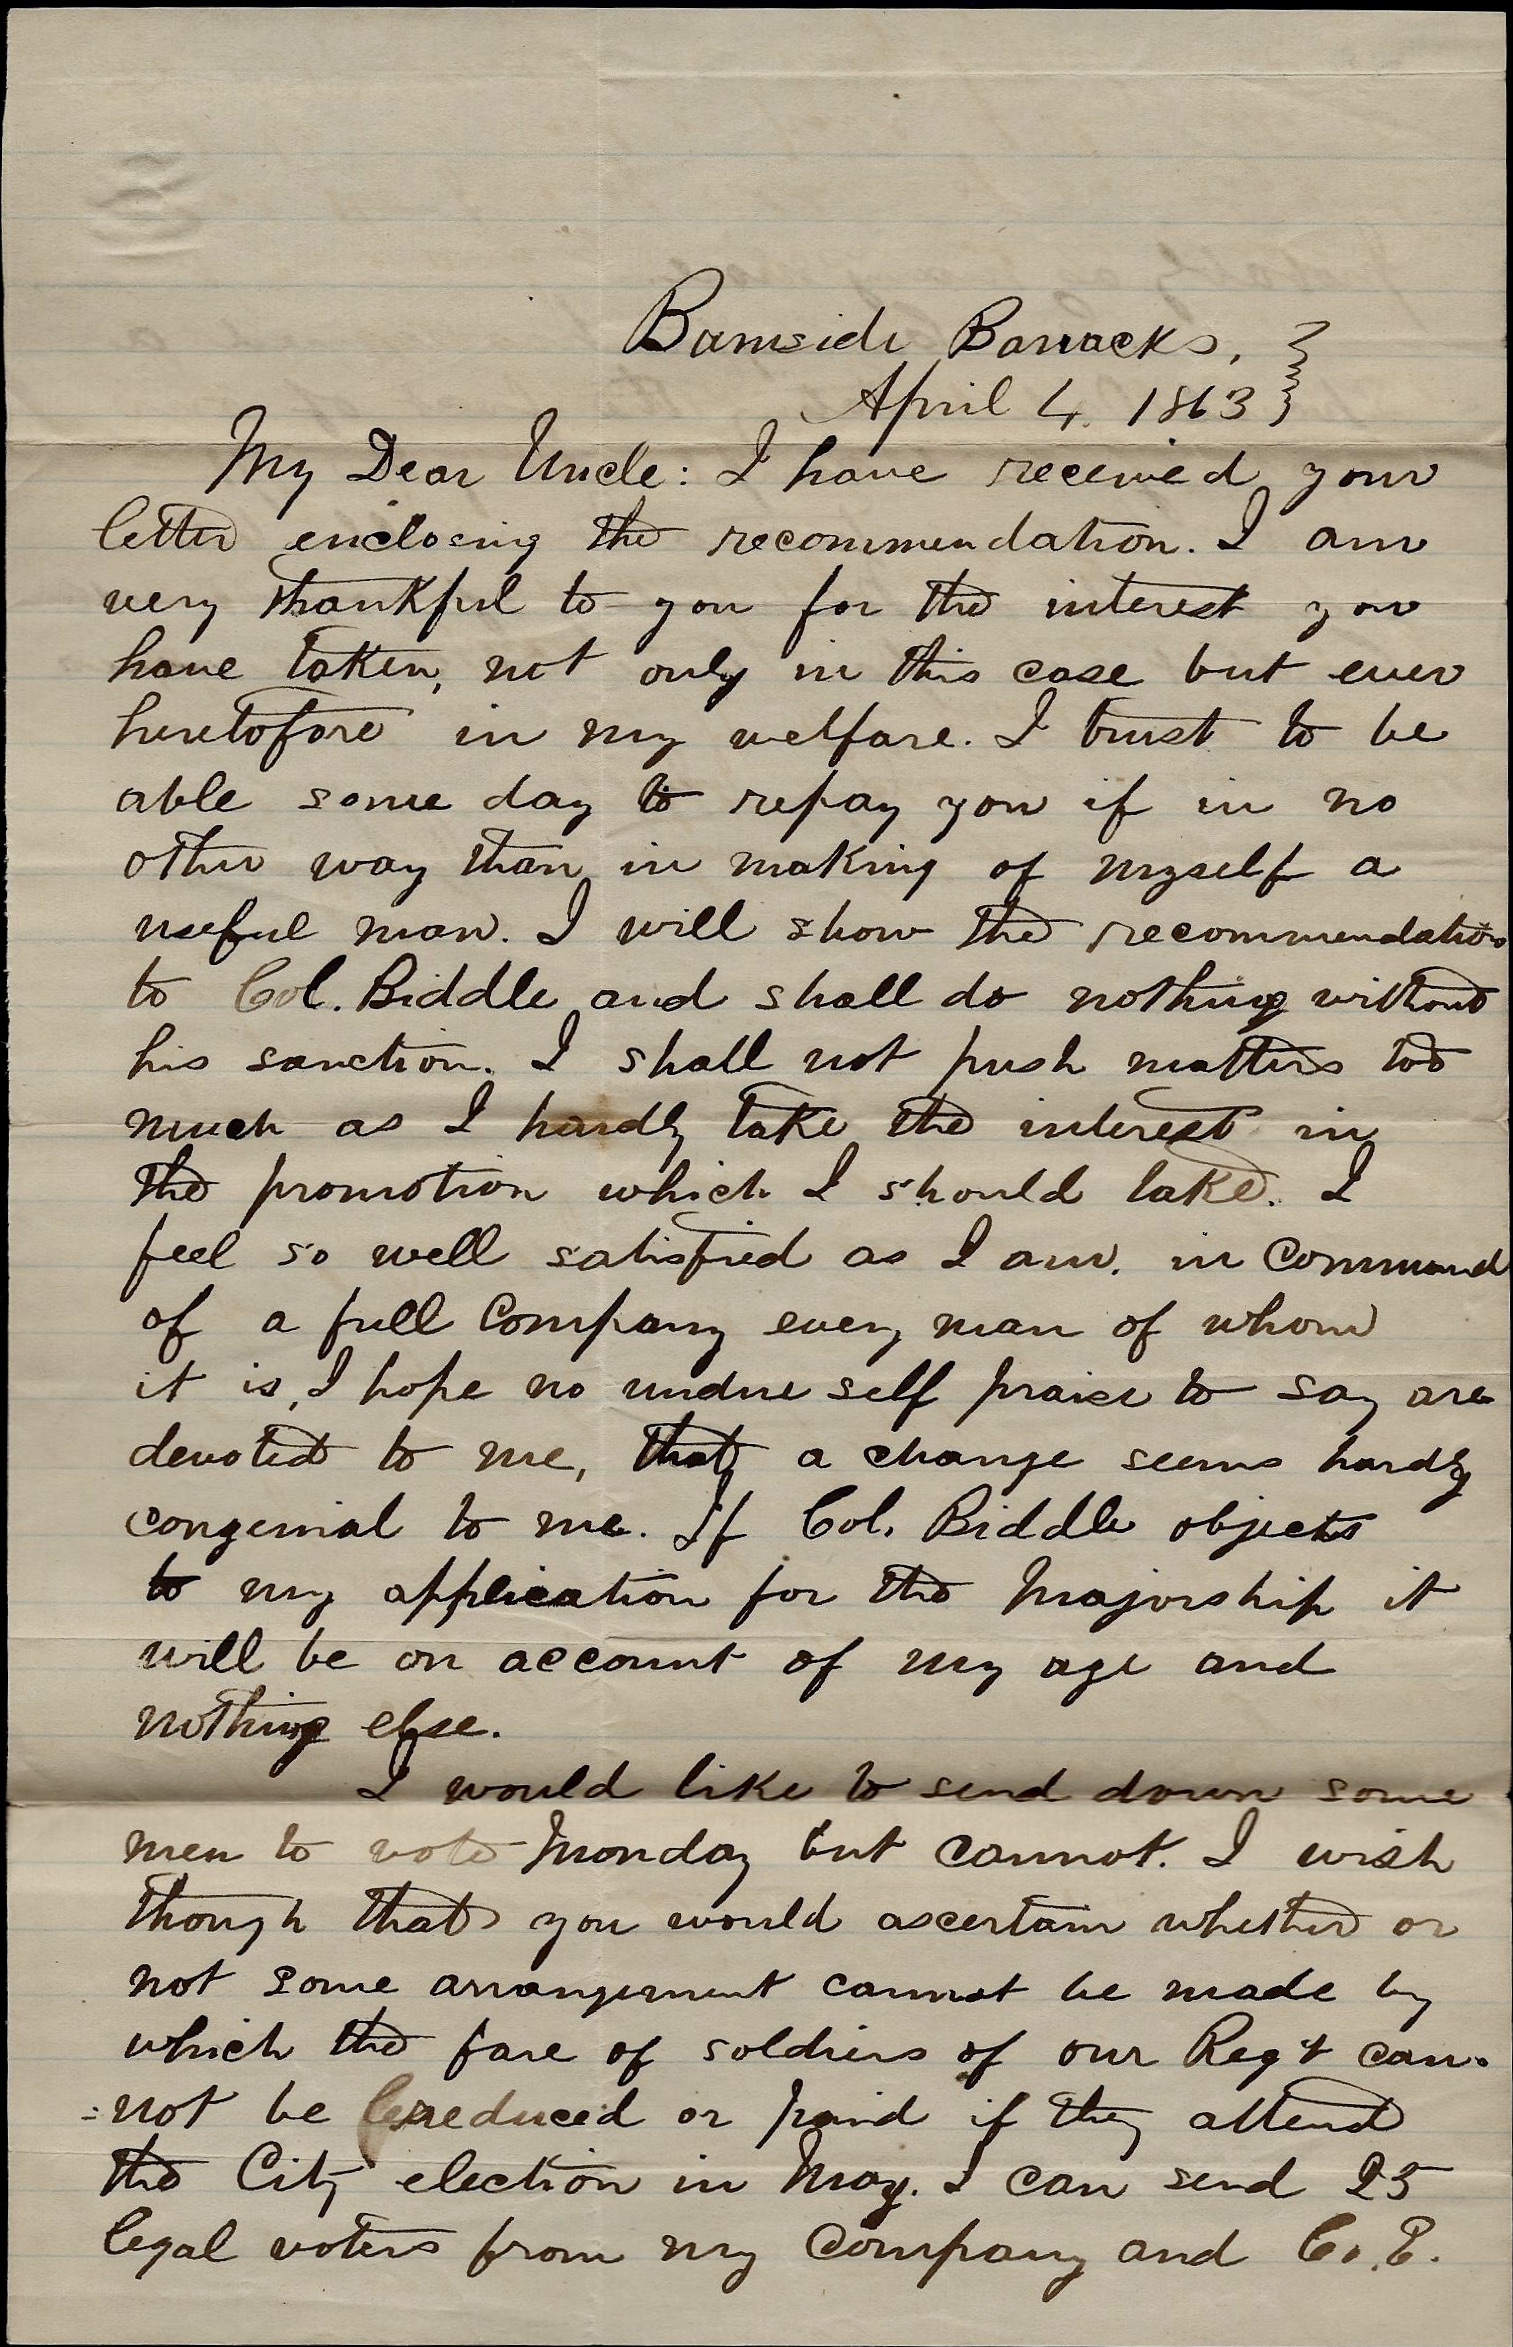 Burnside Barracks,
April 4. 1863
My Dear Uncle: I have received your
letter enclosing the recommendation. I am
very thankful to you for the interest you
have taken, not only in this case but ever
heretofore in my welfare. I trust to be
able some day to repay you if in no
other way than in making of myself a
useful man. I will show the recommendation
to Col. Biddle and shall do nothing without
his sanction. I shall not push matters too
much as I hardly take the interest in
the promotion which I should take. I
feel so well satisfied as I am, in command
of a full Company every man of whom
it is, I hope no undue self praise to say are
devoted to me, that a change seems hardly
congenial to me. If Col. Biddle objects
to my application for the Majorship it
will be on account of my age and
nothing else.
I would like to send down some
men to vote Monday but cannot. I wish
though that you would ascertain whether or
not some arrangement cannot be made by
which the fare of soldiers of our Regt can-
-not be reduced or paid if they attend
the City election in May. I can send 25
legal voters from my Company and Co. E.